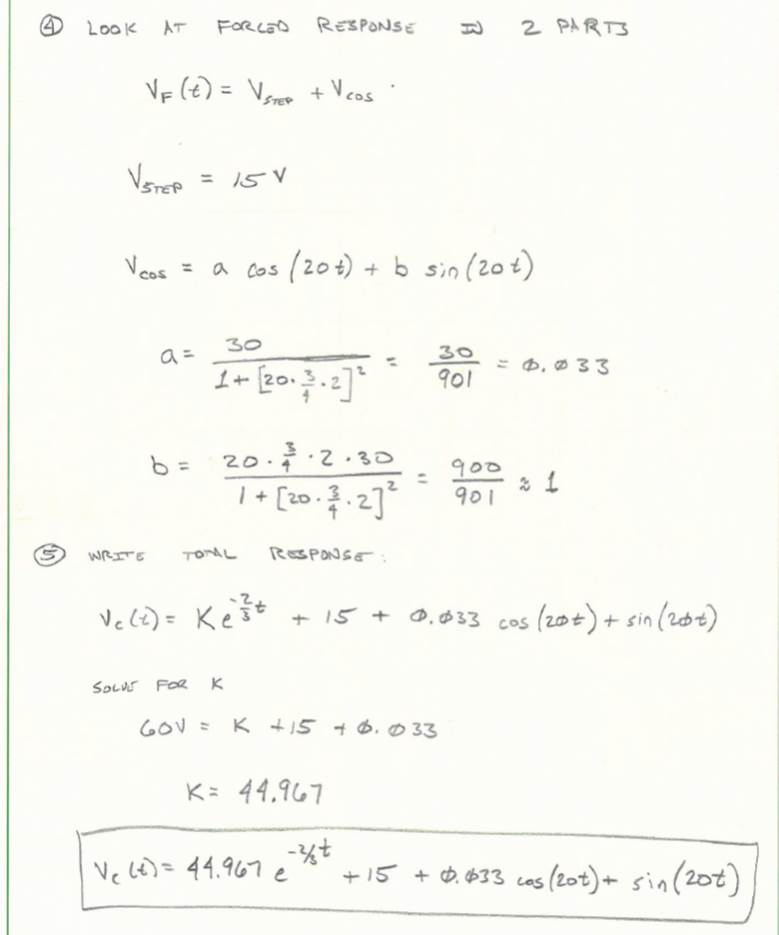 ④ LOOK AT FORCED RESPONSE IN 2 PARTS
V_F(t) = V_STEP + V_cos
V_STEP = 15 V
V_cos = a cos(20t) + b sin(20t)
a = 30 / (1 + [20 · 3/4 · 2]²) = 30/901 = 0.033
b = (20 · 3/4 · 2 · 30) / (1 + [20 · 3/4 · 2]²) = 900/901 ≈ 1
⑤ WRITE TOTAL RESPONSE:
V_c(t) = K e^(-2/3 t) + 15 + 0.033 cos(20t) + sin(20t)
SOLVE FOR K
60V = K + 15 + 0.033
K = 44.967
V_c(t) = 44.967 e^(-2/3 t) + 15 + 0.033 cos(20t) + sin(20t)